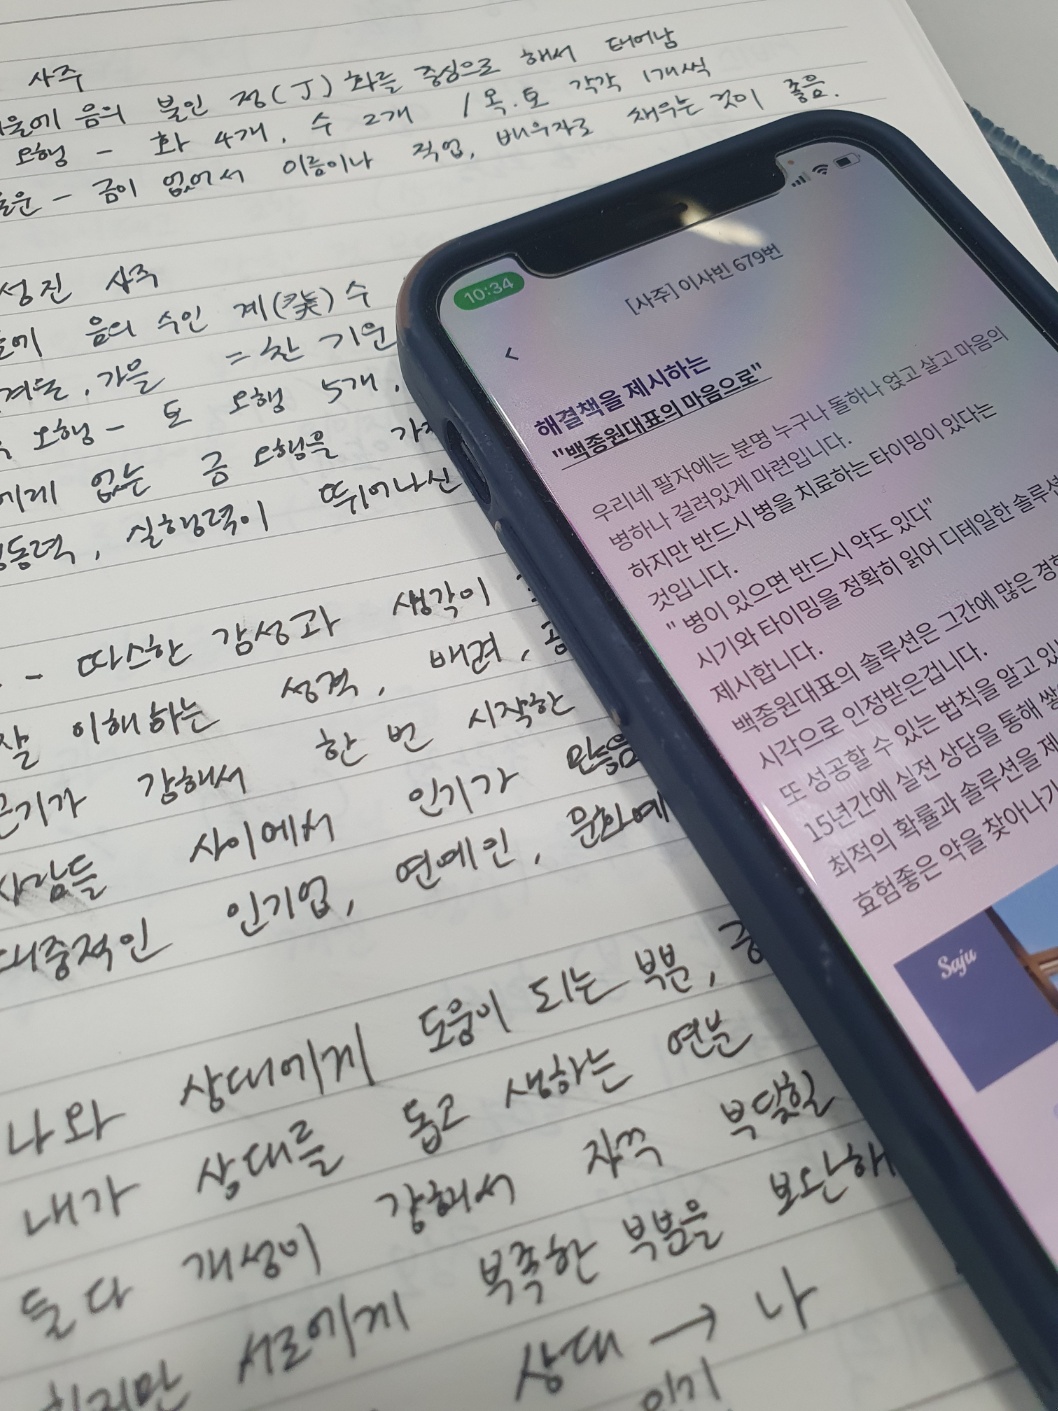 사주
음의 불인 정(丁) 화를 중심으로 해서 태어남
오행 - 화 4개, 수 2개 / 목.토 각각 1개씩
금이 없어서 이름이나 직업, 배우자로 채우는 것이 좋음.
성진 사주
음의 수인 계(癸) 수
겨울, 가을 = 찬 기운
오행 - 토 오행 5개,
없는 금 오행을
실행력이 뛰어나신
- 따스한 감성과 생각이
잘 이해하는 성격, 배려,
끈기가 강해서 한 번 시작한
사람들 사이에서 인기가 만능
대중적인 인기업, 연예인, 문화예
나와 상대에게 도움이 되는 부분,
내가 상대를 돕고 생하는 연분
둘다 개성이 강해서 자꾹 부딪힐
하지만 서로에게 부족한 부분을 보완해
상대 → 나
인기
10:34
[사주] 이사빈 679번
<
해결책을 제시하는
"백종원대표의 마음으로"
우리네 팔자에는 분명 누구나 돌하나 얹고 살고 마음의
병하나 걸려있게 마련입니다.
하지만 반드시 병을 치료하는 타이밍이 있다는
것입니다.
" 병이 있으면 반드시 약도 있다"
시기와 타이밍을 정확히 읽어 디테일한 솔루션
제시합니다.
백종원대표의 솔루션은 그간에 많은 경험
시각으로 인정받은겁니다.
또 성공할 수 있는 법칙을 알고 있
15년간에 실전 상담을 통해 쌓
최적의 확률과 솔루션을 제
효험좋은 약을 찾아나가
Saju